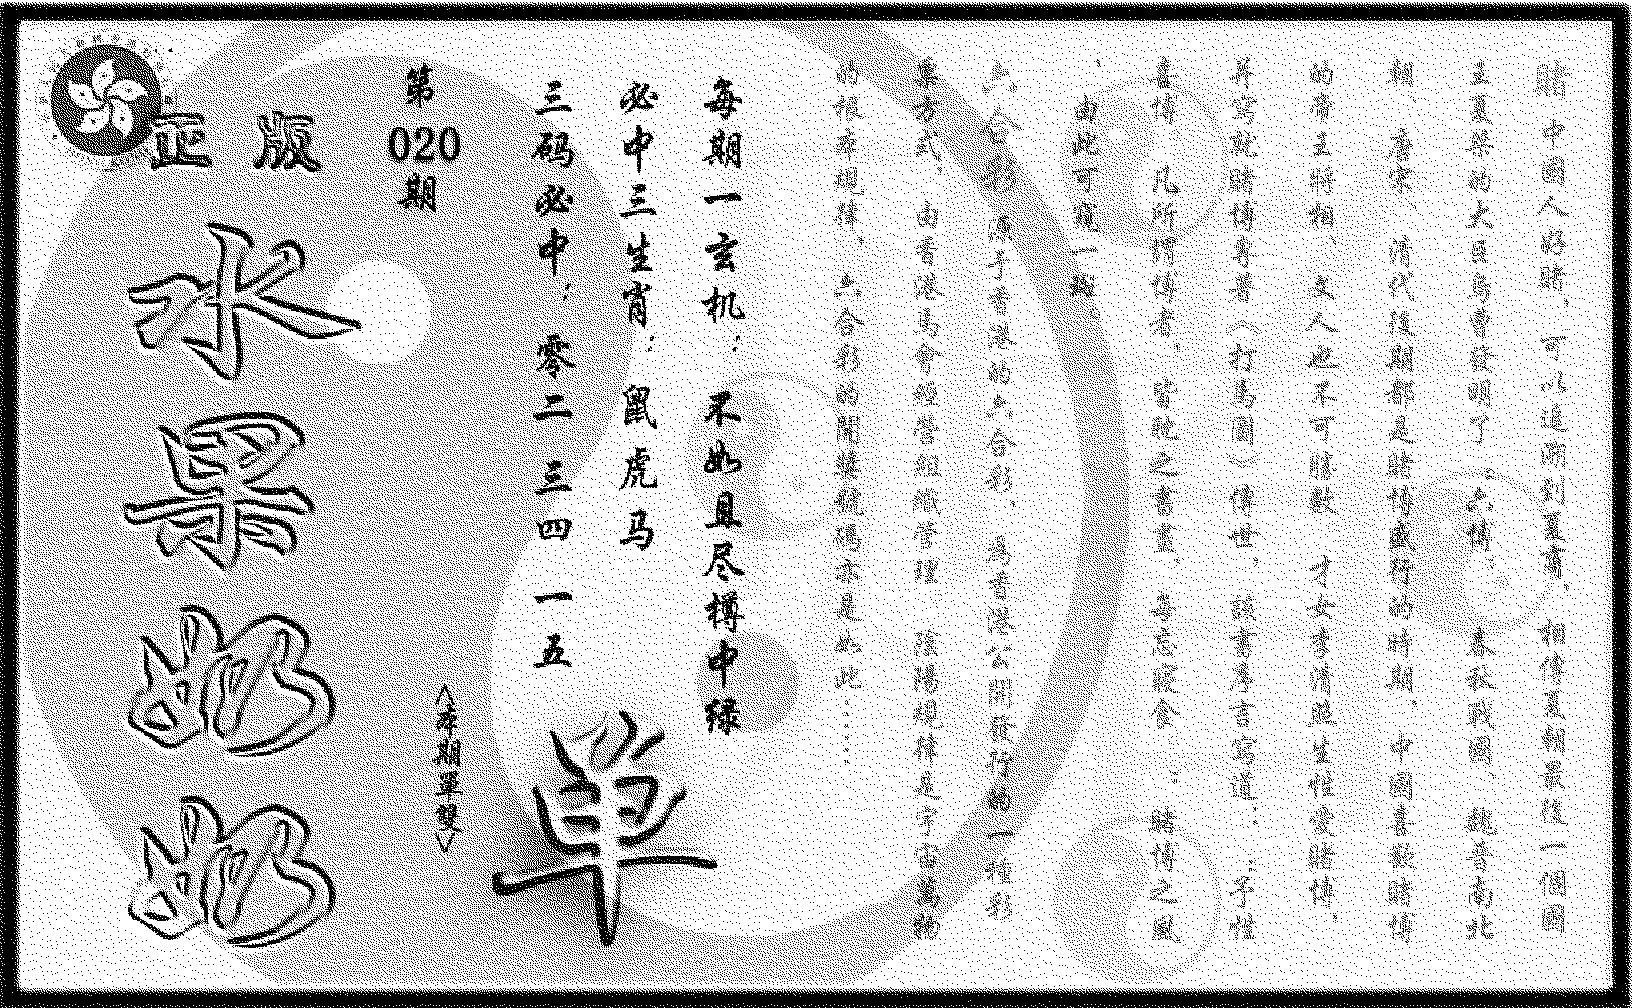 賭 中國人好賭，可以追朔到夏商，相傳夏朝最後一個國
王夏桀的大臣烏曹發明了“六博”。春秋戰國、魏晉南北
朝、唐宋、清代後期都是賭博盛行的時期。中國喜歡賭博
的帝王將相、文人也不可勝數。才女李清照生性愛賭博，
并寫就賭博專著《打馬圖》傳世，該書序言寫道：“予性
喜博，凡所謂博者，皆耽之，每忘寢食”。賭博之風
由此可窺一斑。
六合彩，源于香港的六合彩，為香港公開發行的一種彩
票方式，由香港馬會經營組織管理。陰陽規律是宇宙萬物
的根本規律，六合彩的開獎號碼亦是如此……
每期一玄机：不如且尽樽中绿
必中三生肖：鼠虎马
三码必中：零二 三四 一五
单
第020期
<本期單雙>
正版
水果奶奶